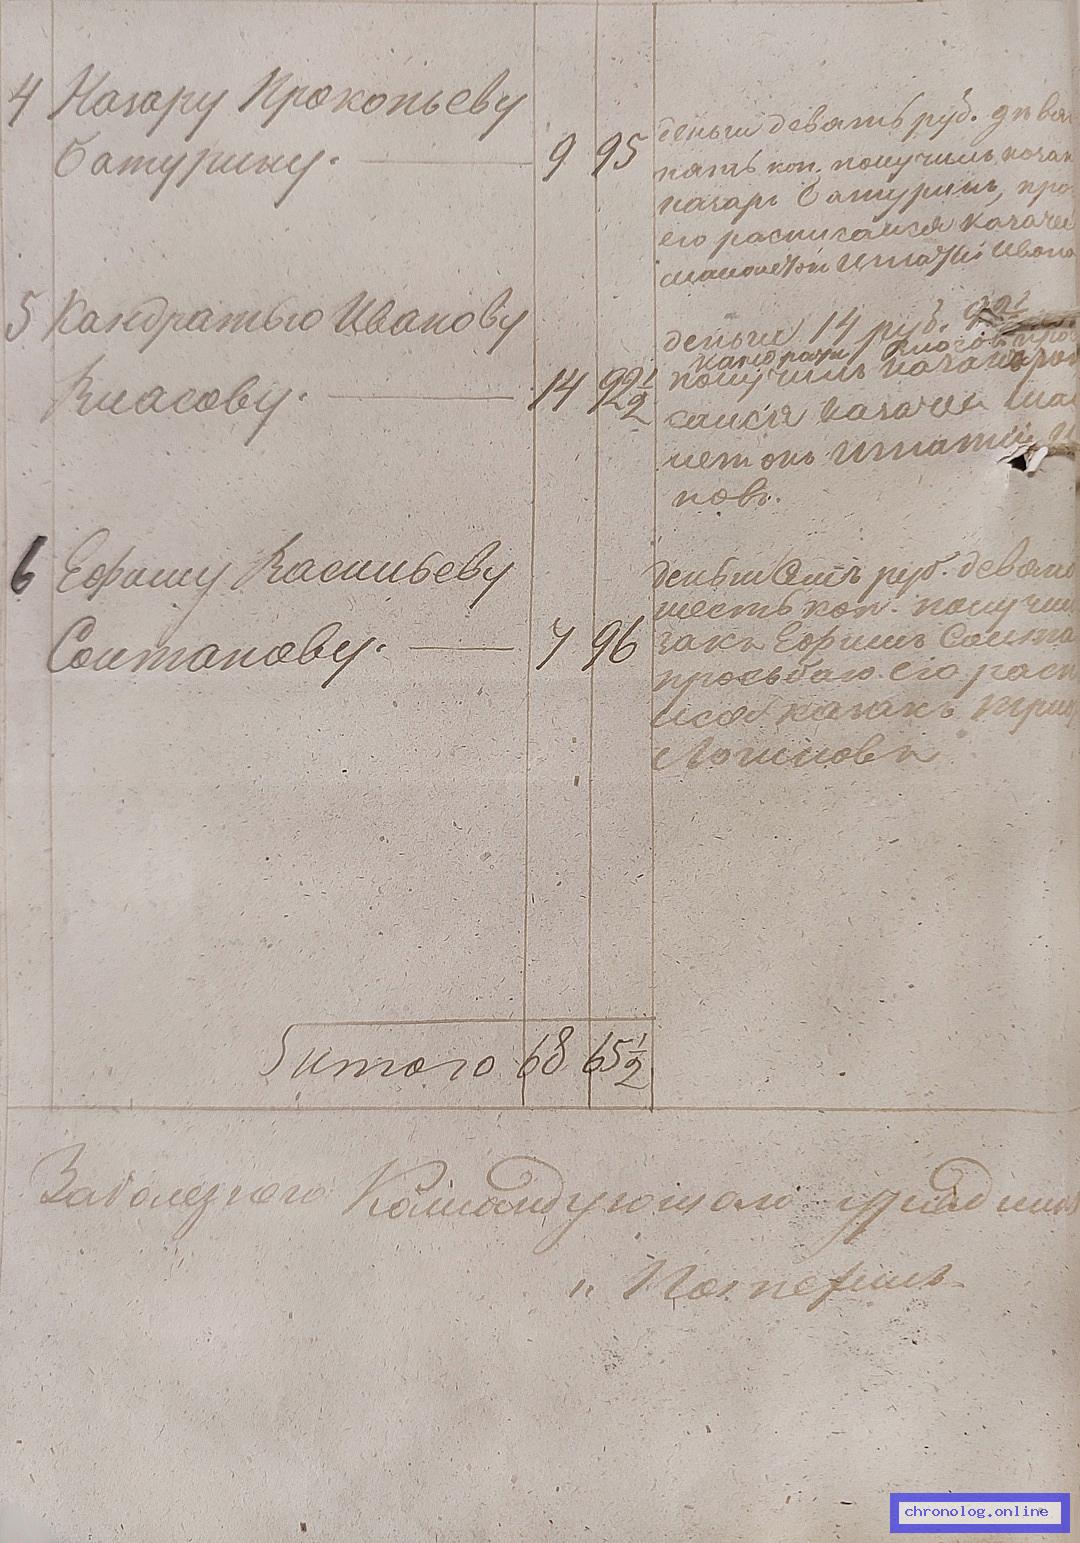 4 Назару Прокопьеву
Батурину. 9 95
деньги девять руб. девян
пять коп. получилъ козак
назаръ Батуринъ, про
его расписался казачей
малолетокъ Игнатий Ивано
5 Кандратью Иванову
Власову. 14 92½
деньги 14 руб. 92½
кандратий Власовъ про
получилъ казакъ
сался казачей мал
летокъ Игнатий И
новъ.
6 Ефиму Васильеву
Солтанову. 7 96
деньги семъ руб. девяно
шесть коп. получил
закъ Ефимъ Солта
просьбаю его расп
исался казакъ
Логиновъ
Итого 68 65½
Заболезного Командующаго урядник